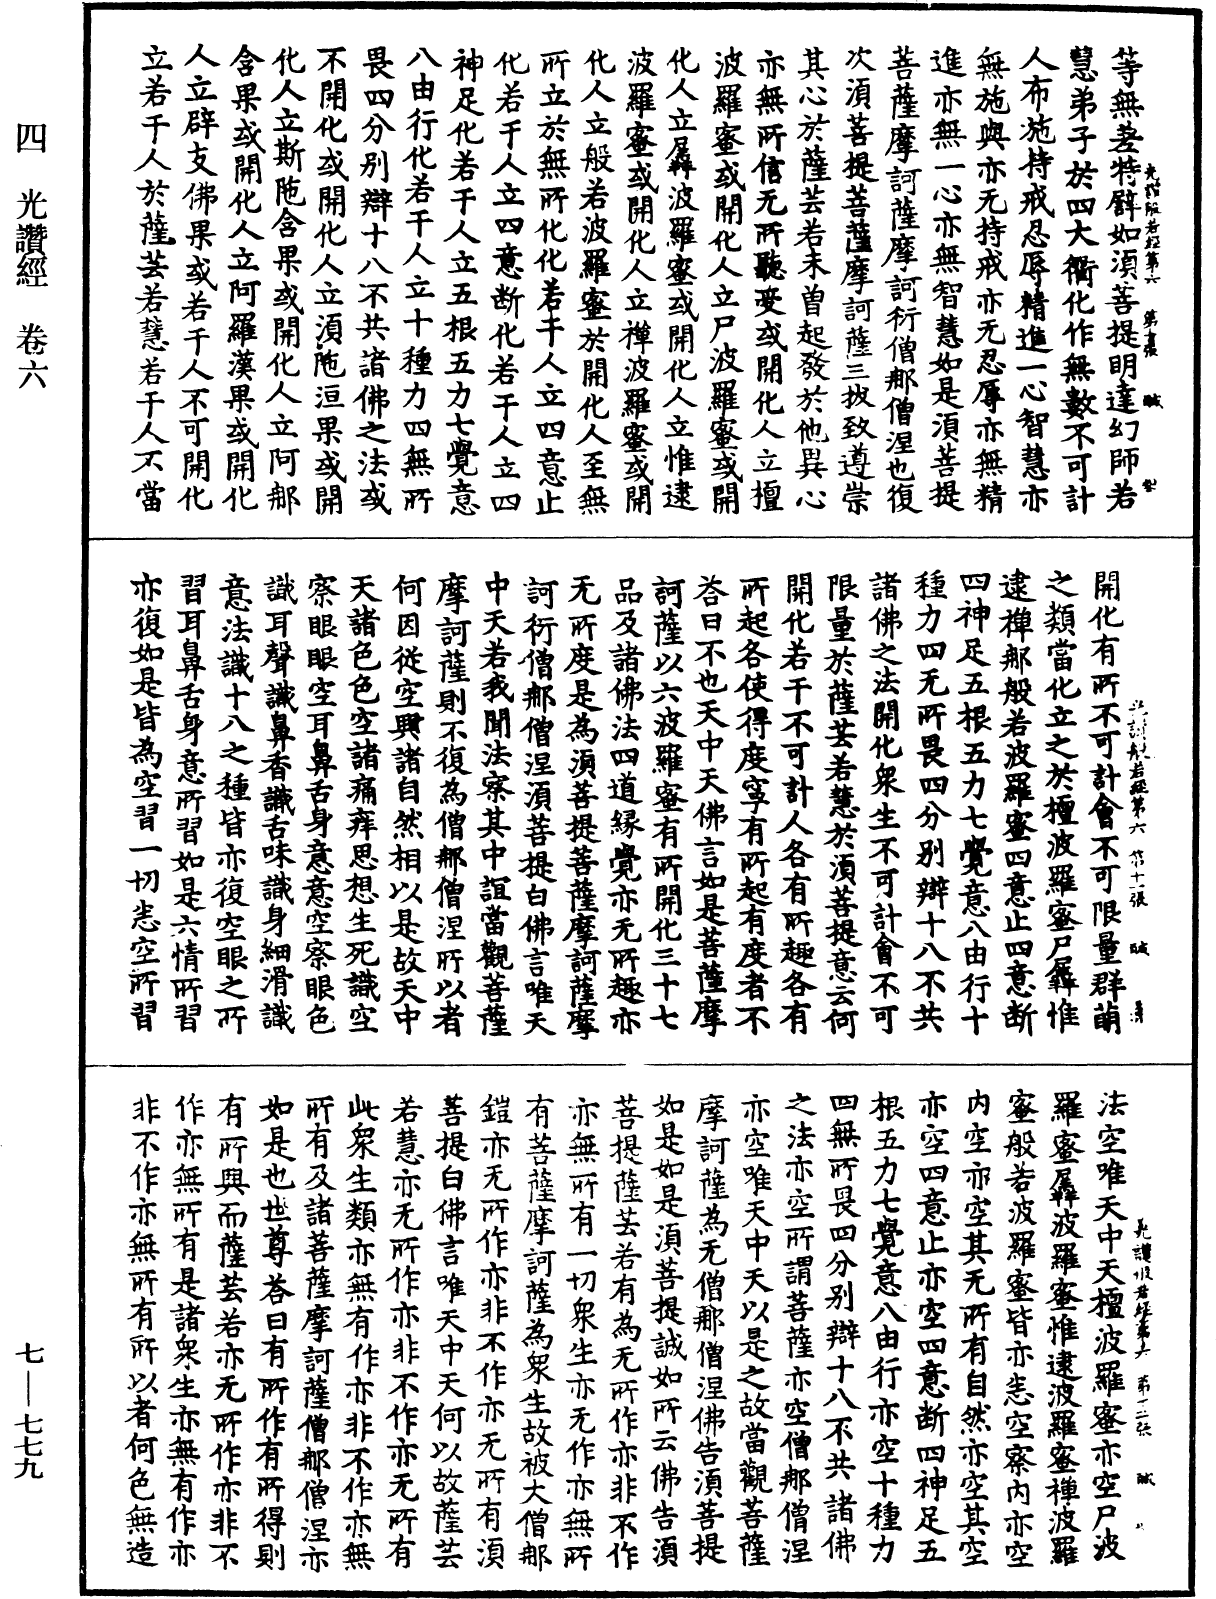 四　光讚經　卷六
七—七七九
等無差特譬如須菩提明達幻師若
慧弟子於四大衢化作無數不可計
人布施持戒忍辱精進一心智慧亦
無施與亦无持戒亦无忍辱亦無精
進亦無一心亦無智慧如是須菩提
菩薩摩訶薩摩訶衍僧那僧涅也復
次須菩提菩薩摩訶薩三拔致遵崇
其心於薩芸若未曾起發於他異心
亦無所信无所聽受或開化人立檀
波羅蜜或開化人立尸波羅蜜或開
化人立羼波羅蜜或開化人立惟逮
波羅蜜或開化人立禪波羅蜜或開
化人立般若波羅蜜於開化人至無
所立於無所化化若干人立四意止
化若干人立四意断化若干人立四
神足化若干人立五根五力七覺意
八由行化若干人立十種力四無所
畏四分别辯十八不共諸佛之法或
不開化或開化人立須陁洹果或開
化人立斯陁含果或開化人立阿那
含果或開化人立阿羅漢果或開化
人立辟支佛果或若干人不可開化
立若干人於薩芸若慧若干人不當
開化有所不可計會不可限量群萌
之類當化立之於檀波羅蜜尸羼惟
逮禪那般若波羅蜜四意止四意断
四神足五根五力七覺意八由行十
種力四无所畏四分别辯十八不共
諸佛之法開化衆生不可計會不可
限量於薩芸若慧於須菩提意云何
開化若干不可計人各有所趣各有
所起各使得度寧有所起有度者不
荅曰不也天中天佛言如是菩薩摩
訶薩以六波羅蜜有所開化三十七
品及諸佛法四道緣覺亦无所趣亦
无所度是為須菩提菩薩摩訶薩摩
訶衍僧那僧涅須菩提白佛言唯天
中天若我聞法察其中誼當觀菩薩
摩訶薩則不復為僧那僧涅所以者
何因從空興諸自然相以是故天中
天諸色色空諸痛痒思想生死識空
察眼眼空耳鼻舌身意意空察眼色
識耳聲識鼻香識舌味識身細滑識
意法識十八之種皆亦復空眼之所
習耳鼻舌身意所習如是六情所習
亦復如是皆為空習一切悉空所習
法空唯天中天檀波羅蜜亦空尸波
羅蜜羼波羅蜜惟逮波羅蜜禅波羅
蜜般若波羅蜜皆亦悉空察内亦空
内空亦空其无所有自然亦空其空
亦空四意止亦空四意断四神足五
根五力七覺意八由行亦空十種力
四無所畏四分别辯十八不共諸佛
之法亦空所謂菩薩亦空僧那僧涅
亦空唯天中天以是之故當觀菩薩
摩訶薩為无僧那僧涅佛告須菩提
如是如是須菩提誠如所云佛告須
菩提薩芸若有為无所作亦非不作
亦無所有一切衆生亦无作亦無所
有菩薩摩訶薩為衆生故被大僧那
鎧亦无所作亦非不作亦无所有須
菩提白佛言唯天中天何以故薩芸
若慧亦无所作亦非不作亦无所有
此衆生類亦無有作亦非不作亦無
所有及諸菩薩摩訶薩僧那僧涅亦
如是也世尊荅曰有所作有所得則
有所興而薩芸若亦无所作亦非不
作亦無所有是諸衆生亦無有作亦
非不作亦無所有所以者何色無造